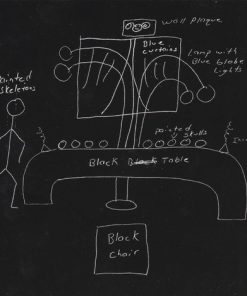 wall Plaque
Blue
curtains
Lamp with
Blue Globe
Lights
Painted
Skeletons
Painted
Skulls
Black Table
Black
Chair